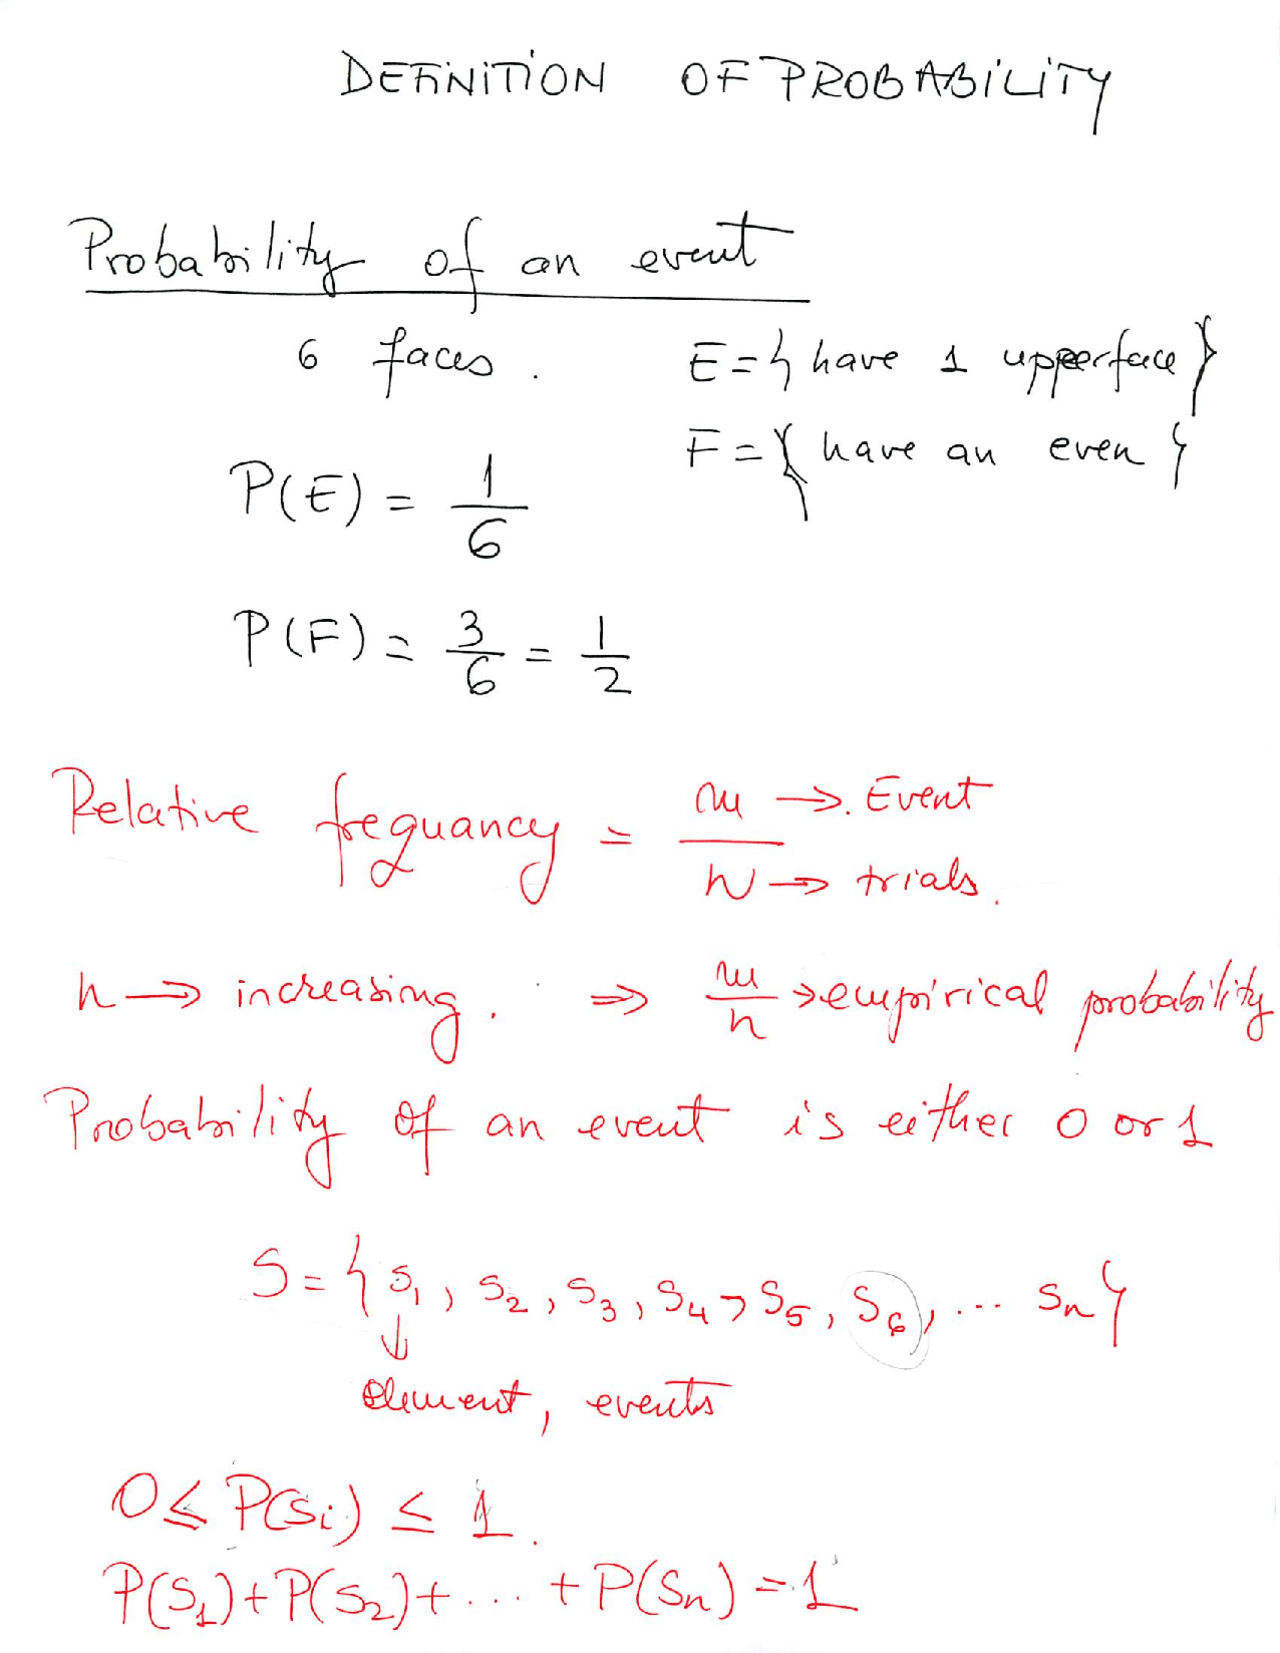 DEFINITION OF PROBABILITY
Probability of an event
6 faces. E = { have 1 upperface }
F = { have an even }
P(E) = 1/6
P(F) = 3/6 = 1/2
Relative frequancy = m/n
m → Event
n → trials.
n → increasing. ⇒ m/n → empirical probability
Probability of an event is either 0 or 1
S = { s1, s2, s3, s4, s5, s6, ... sn }
↓
element, events
0 ≤ P(si) ≤ 1.
P(S1) + P(S2) + ... + P(Sn) = 1